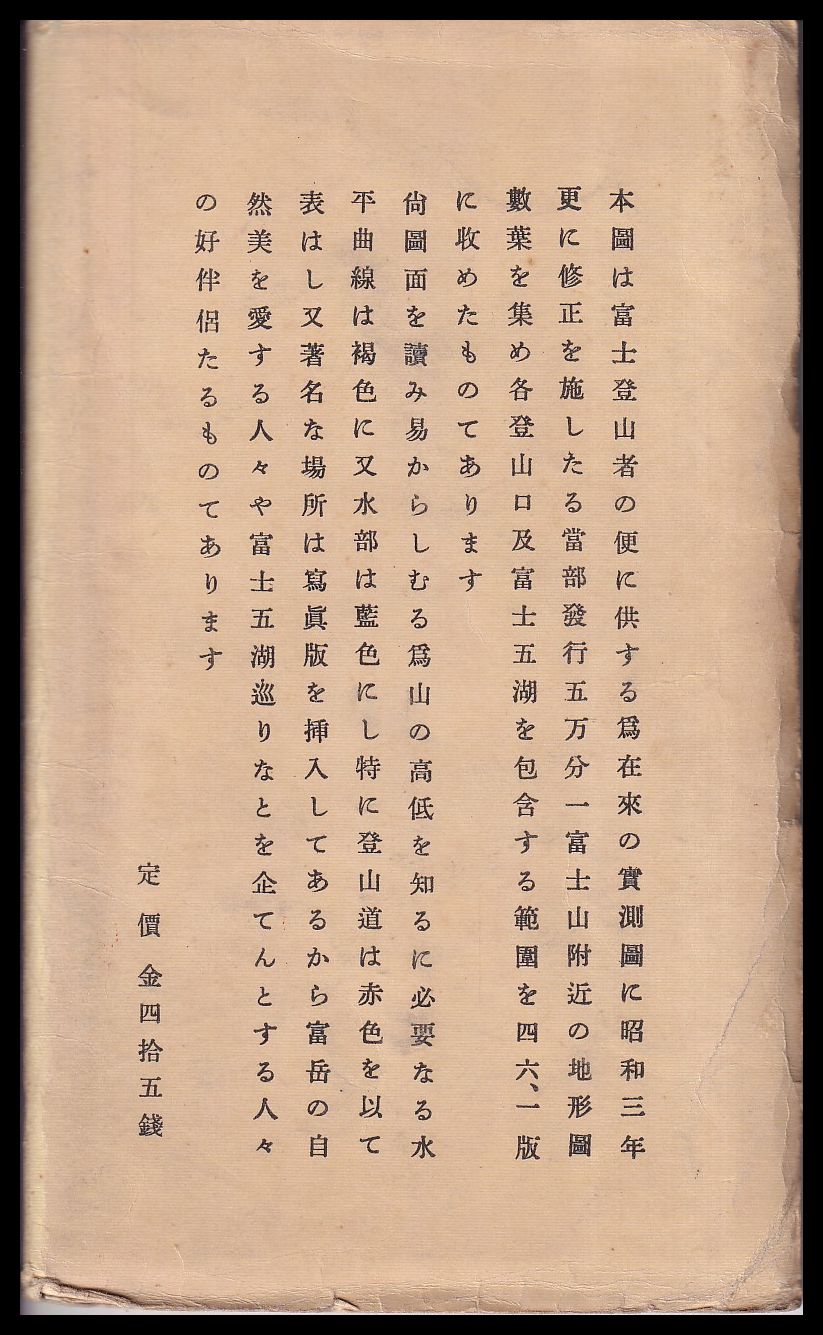 本圖は富士登山者の便に供する爲在來の實測圖に昭和三年
更に修正を施したる當部發行五万分一富士山附近の地形圖
數葉を集め各登山口及富士五湖を包含する範圍を四六、一版
に收めたものてあります
尙圖面を讀み易からしむる爲山の高低を知るに必要なる水
平曲線は褐色に又水部は藍色にし特に登山道は赤色を以て
表はし又著名な場所は寫眞版を挿入してあるから富岳の自
然美を愛する人々や富士五湖巡りなとを企てんとする人々
の好伴侶たるものてあります
定價金四拾五錢